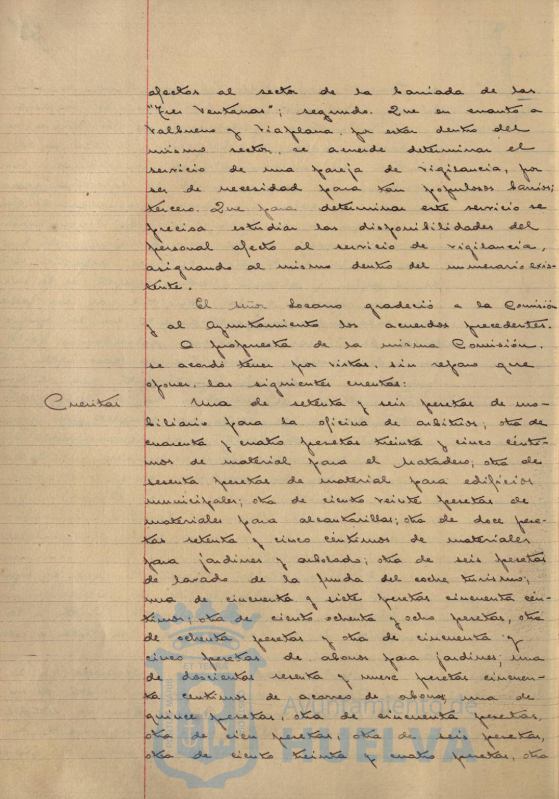 afectos al sector de la barriada de las
"Tres Ventanas"; segundo. Que en cuanto a
Valbueno y Viaplana, por estar dentro del
mismo sector, se acuerde determinar el
servicio de una pareja de vigilancia, por
ser de necesidad para tan populosos barrios;
tercero. Que para determinar este servicio se
precisa estudiar las disponibilidades del
personal afecto al servicio de vigilancia,
asignando al mismo dentro del numerario exis-
tente.
El señor Lozano gradeció a la Comisión
y al Ayuntamiento los acuerdos precedentes.
A propuesta de la misma Comisión,
se acordó tener por vistas, sin reparo que
oponer, las siguientes cuentas:
Cuentas
Una de setenta y seis pesetas de mo-
biliario para la oficina de arbitrios; otra de
cuarenta y cuatro pesetas treinta y cinco cénti-
mos de material para el Matadero; otra de
sesenta pesetas de material para edificios
municipales; otra de ciento veinte pesetas de
materiales para alcantarillas; otra de doce pese-
tas setenta y cinco céntimos de materiales
para jardines y arbolado; otra de seis pesetas
de lavado de la funda del coche turismo;
una de cincuenta y siete pesetas cincuenta cén-
timos; otra de ciento ochenta y ocho pesetas, otra
de ochenta pesetas y otra de cincuenta y
cinco pesetas de abonos para jardines; una
de doscientas sesenta y nueve pesetas cincuen-
ta centimos de acarreo de abonos; una de
quince pesetas, otra de cincuenta pesetas,
otra de cien pesetas, otra de seis pesetas,
otra de ciento treinta y cuatro pesetas, otra
Ayuntamiento de
HUELVA